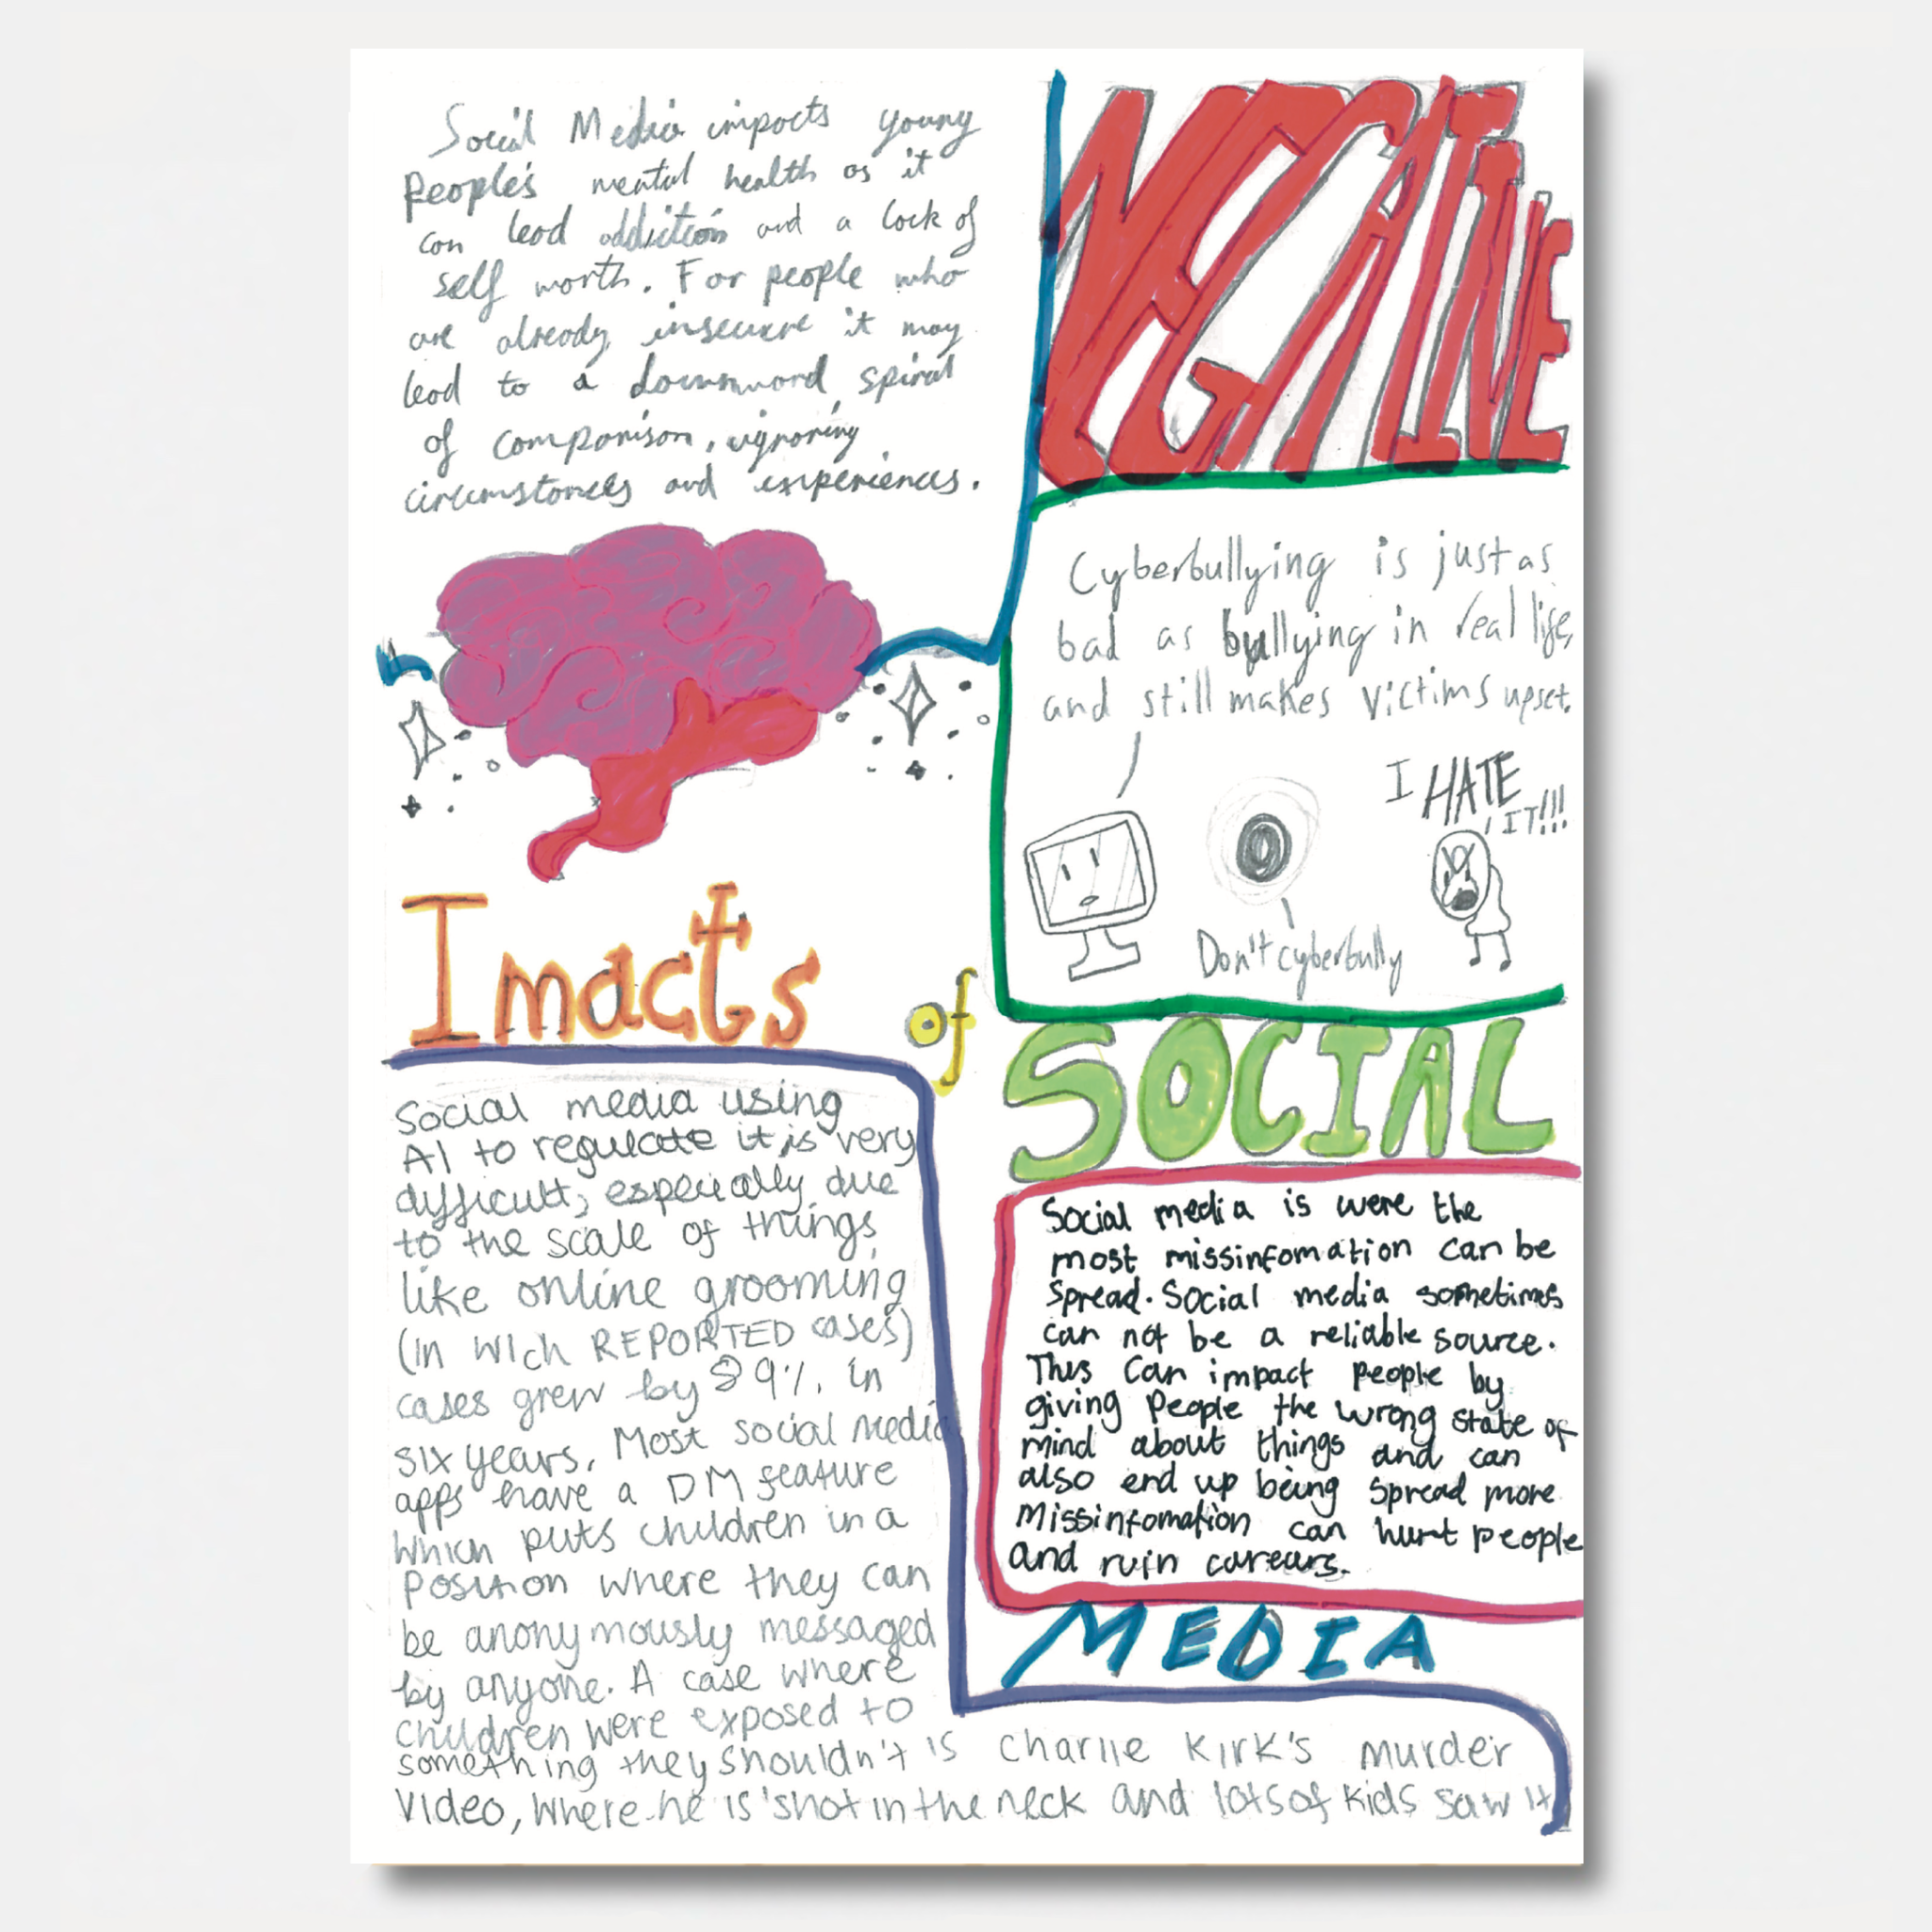 Social Media impacts young
People's mental health as it
can lead addiction and a lack of
self worth. For people who
are already insecure it may
lead to a downword spiral
of comparison, ignoring
circumstances and experiences.
NEGATIVE
Cyberbullying is just as
bad as bullying in real life,
and still makes victims upset.
I HATE
IT!!!
Don't cyberbully
Imacts
of
SOCIAL
Social media using
AI to regulate it is very
difficult, especially due
to the scale of things
like online grooming
(in wich REPORTED cases)
cases grew by 89% in
six years. Most social media
apps have a DM feature
which puts children in a
position where they can
be anonymously messaged
by anyone. A case where
children were exposed to
something they shouldn't is Charlie Kirk's murder
video, where he is shot in the neck and lots of kids saw it
Social media is were the
most missinfomation can be
spread. Social media sometimes
can not be a reliable source.
This can impact people by
giving people the wrong state of
mind about things and can
also end up being spread more
Missinfomation can hurt people
and ruin careurs.
MEDIA